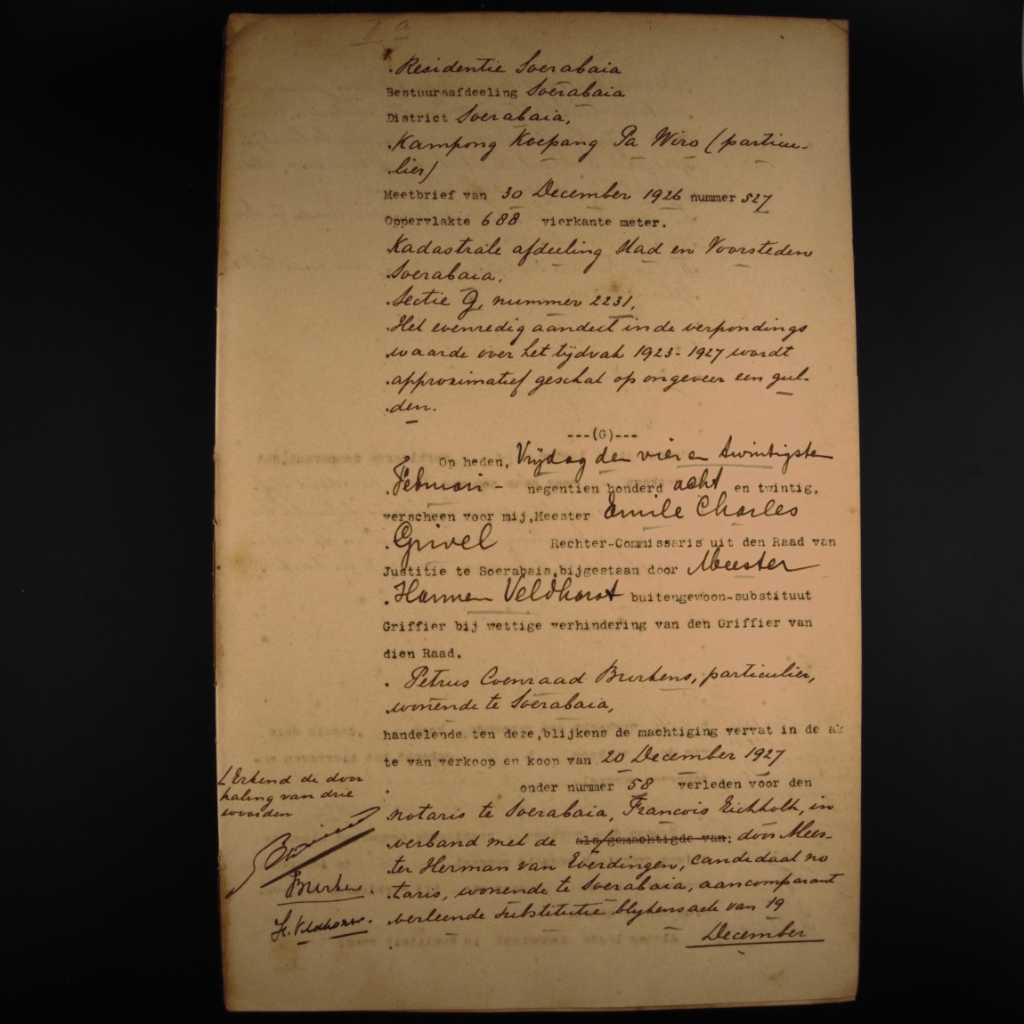 Residentie Soerabaia
Bestuursafdeeling Soerabaia
District Soerabaia,
Kampong Koepang Pa Wiro (particu-
lier)
Meetbrief van 30 December 1926 nummer 527
Oppervlakte 688 vierkante meter.
Kadastrale afdeeling Stad en Voorsteden
Soerabaia.
Sectie G, nummer 2231.
Het evenredig aandeel in de verpondings
waarde over het tijdvak 1923-1927 wordt
approximatief geschat op ongeveer een gul-
den.
---(G)---
Op heden, Vrijdag den vier en twintigsten
Februari - negentien honderd acht en twintig,
verscheen voor mij, Meester Emile Charles
Grivel Rechter-Commissaris uit den Raad van
Justitie te Soerabaia, bijgestaan door Meester
Harmen Veldhorst buitengewoon-substituut
Griffier bij wettige verhindering van den Griffier van
dien Raad.
Petrus Coenraad Burkens, particulier,
wonende te Soerabaia,
handelende ten deze, blijkens de machtiging vervat in de ak
te van verkoop en koop van 20 December 1927
onder nummer 58 verleden voor den
notaris te Soerabaia, Francois Eichholtz, in
verband met de als/gemachtigde van, door Mees-
ter Herman van Everdingen, candidaat no
taris, wonende te Soerabaia, aan comparant
verleende substitutie blijkens acte van 19
December
Erkend de door
haling van drie
woorden
Burkens.
H. Veldhorst.